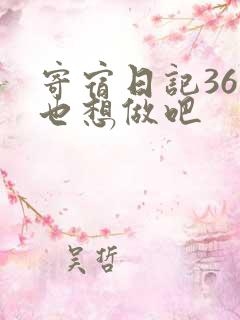 寄宿日記36
也想做吧
吴哲